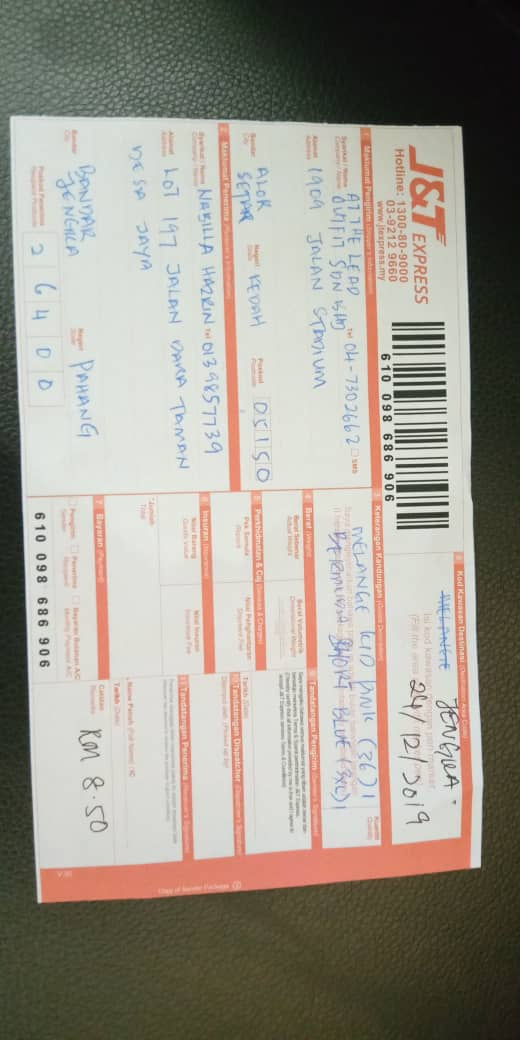 J&T EXPRESS
Hotline: 1300-80-9000
03-9212 9660
www.jtexpress.my
610 098 686 906
1 Maklumat Pengirim (Shipper's Information)
Syarikat / Nama AT THE LEAD
Company / Name OUTFIT SDN BHD Tel 04-7302662 SMS
Alamat 1909 JALAN STADIUM
Address
Bandar ALOR SETAR Negeri KEDAH Poskod 05150
City State Postcode
2 Maklumat Penerima (Receiver's Information)
Syarikat / Nama NABILLA HAZRIN Tel 0139857739
Company / Name
Alamat LOT 197 JALAN DARA TAMAN
Address
DESA JAYA
Bandar BANDAR JENGKA Negeri PAHANG
City State
Poskod Penerima 26400
Receiver Postcode
8 Kod Kawasan Destinasi (Destination Area Code)
JENGKA
24/12/2019
3 Keterangan Kandungan (Goods Description)
Kuantiti
Quantity
MELANGE KID PINK (36) 1
BERMUDA SHORT BLUE (3XL) 1
4 Berat (Weight)
Berat Sebenar
Actual Weight
Berat Volumetrik
Dimensional Weight
5 Perkhidmatan & Caj (Services & Charges)
Pek Semula
Nilai Penghantaran
Shipment Fee
6 Insuran (Insurance)
Nilai Barang
Goods Value
Nilai Insuran
Insurance Fee
*Jumlah
Total
7 Bayaran (Payment)
Pengirim Penerima Bayaran Bulanan A/C
Sender Recipient Monthly Payment A/C
610 098 686 906
9 Tandatangan Pengirim (Sender's Signature)
Tarikh (Date)
10 Tandatangan Dispatcher (Dispatcher's Signature)
11 Tandatangan Penerima (Receiver's Signature)
Nama Penuh (Full Name) / IC
Tarikh (Date)
Catatan RM 8.50
Remarks